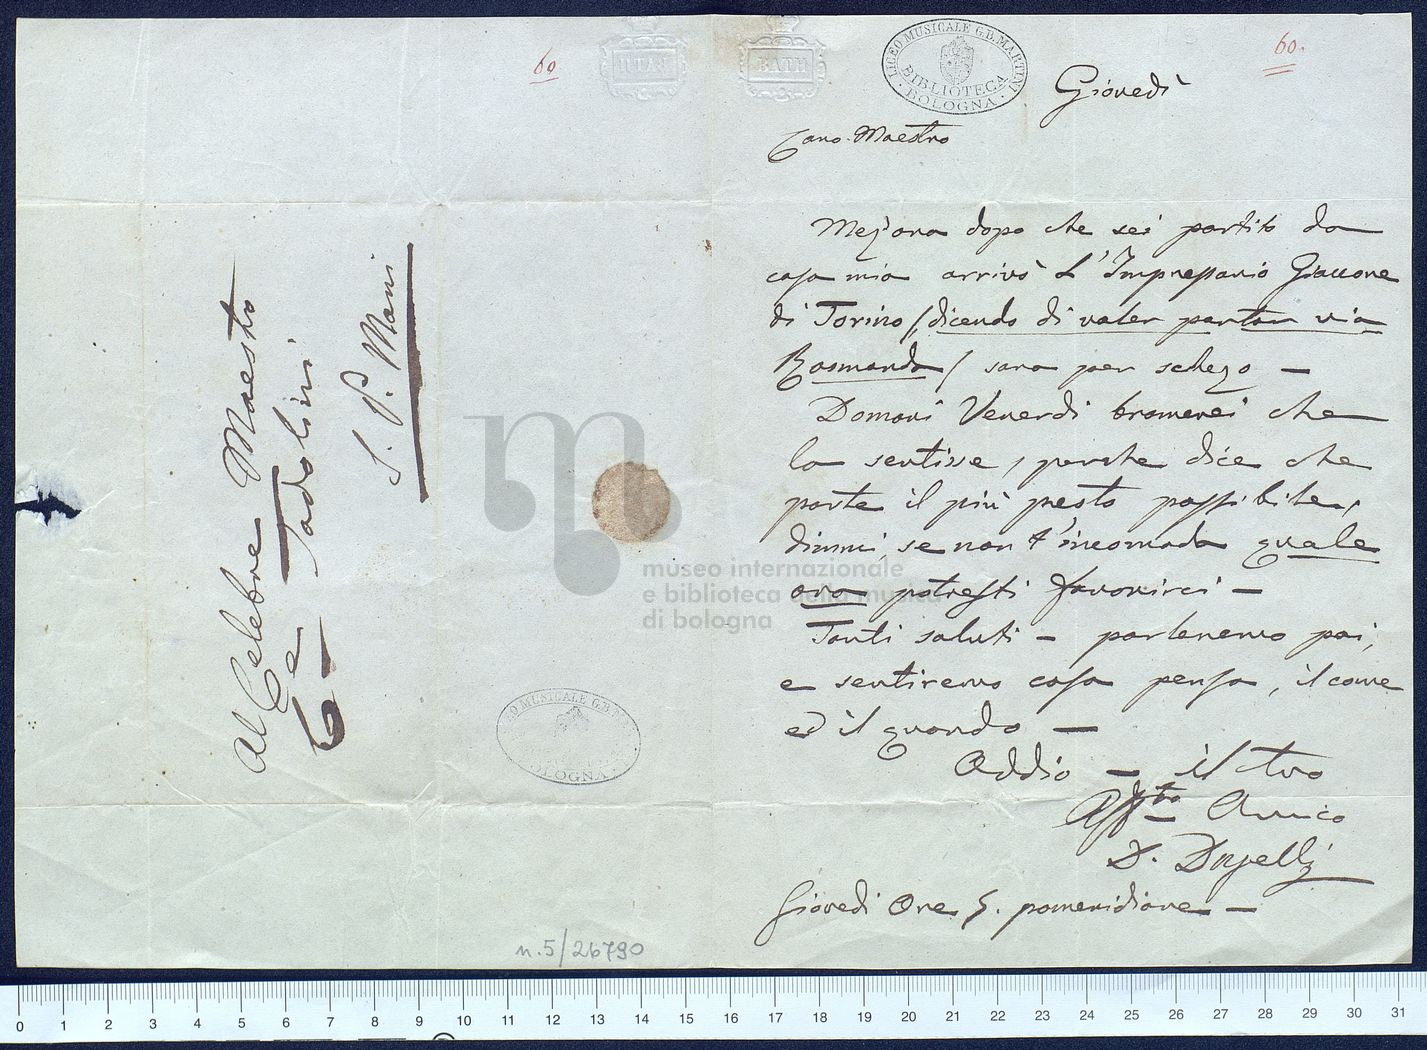 60
60.
BATH
BATH
LICEO MUSICALE G.B. MARTINI
BIBLIOTECA
BOLOGNA
Giovedì
Caro Maestro
Mez'ora dopo che sei partito da
casa mia arrivò L'Impressario Giaccone
di Torino (dicendo di voler portar via
Rosmunda) sara per scherzo —
Domani Venerdi bramerei che
la sentisse, perche dice che
parte il più presto possibile,
dimmi, se non t'incomoda quale
ora potresti favorirci —
Tanti saluti — parleremo poi,
e sentiremo cosa pensa, il come
ed il quando —
Addio — il tuo
Aff.mo Amico
D.
Giovedi Ore 5. pomeridiane —
Al Celebre Maestro
Tadolini
S. P. Mani
museo internazionale
e biblioteca della musica
di bologna
LICEO MUSICALE G.B. M
BOLOGNA
n.5/26790
0 1 2 3 4 5 6 7 8 9 10 11 12 13 14 15 16 17 18 19 20 21 22 23 24 25 26 27 28 29 30 31